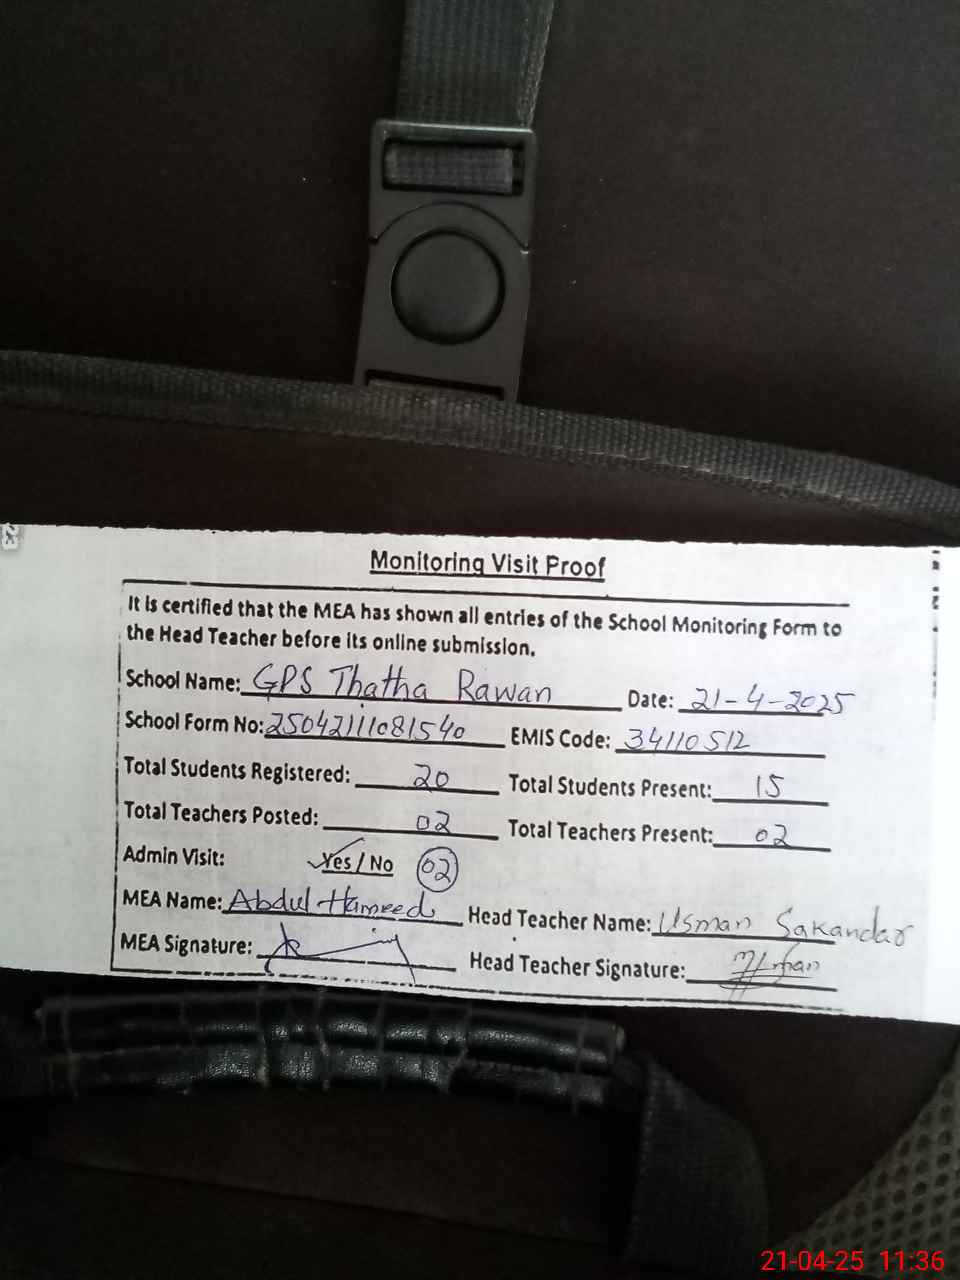 Monitoring Visit Proof
It is certified that the MEA has shown all entries of the School Monitoring Form to
the Head Teacher before its online submission.
School Name: GPS Thatha Rawan Date: 21-4-2025
School Form No: 25042111081540 EMIS Code: 34110512
Total Students Registered: 20 Total Students Present: 15
Total Teachers Posted: 02 Total Teachers Present: 02
Admin Visit: Yes / No 02
MEA Name: Abdul Hameed Head Teacher Name: Usman Sakandar
MEA Signature: Head Teacher Signature:
21-04-25 11:36